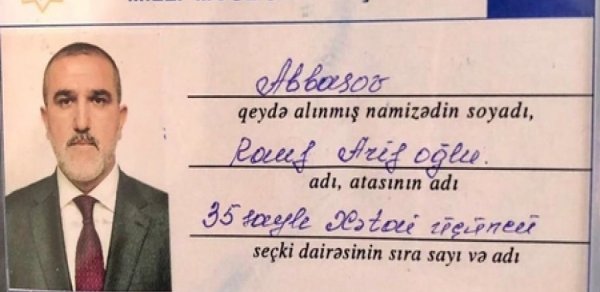 Abbasov
qeydə alınmış namizədin soyadı,
Rauf Arif oğlu.
adı, atasının adı
35 saylı Xətai üçüncü
seçki dairəsinin sıra sayı və adı